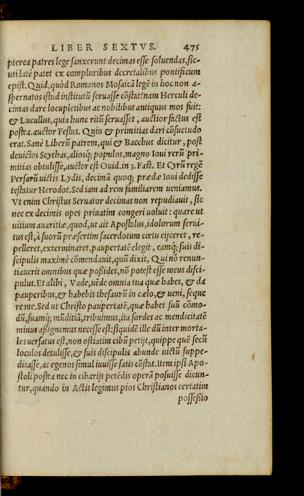 LIBER SEXTVS. 475
pterea patres lege sanxerunt decimas esse soluendas, sic-
uti latè patet ex compluribus decretalibus pontificum
epist. Quid, quòd Romanos Mosaicã legẽ in hoc non a-
spernatos istud institutũ seruasse cõstat: nam Herculi de-
cimas dare locupletibus ac nobilibus antiquus mos fuit:
& Lucullus, quia hunc ritũ seruasset, auctior factus est
postea. auctor Festus. Quin & primitias dari cõsuetudo
erat. Sanè Liberũ patrem, qui & Bacchus dicitur, post
deuictos Scythas, aliosq; populos, magno Ioui rerũ pri-
mitias obtulisse, auctor est Ouid. in 3. Fast. Et Cyrũ regẽ
Persarũ victis Lydis, decimã quoq; prædæ Ioui dedisse
testatur Herodot. Sed iam ad rem familiarem ueniamus.
Vt enim Christus Seruator decimas non repudiauit, sic
nec ex decimis opes priuatim congeri uoluit: quare ut
uitium auaritiæ, quod, ut ait Apostolus, idolorum serui-
tus est, à suorũ præsertim sacerdotum cœtu eijceret, re-
pelleret, exterminaret, paupertatẽ elegit, eamq; suis di-
scipulis maximè cõmendauit, quũ dixit, Qui nõ renun-
tiauerit omnibus quæ possidet, nõ potest esse meus disci-
pulus. Et alibi, Vade, uẽde omnia tua quæ habes, & da
pauperibus, & habebis thesaurũ in cælo, & ueni, seque
re me. Sed ut Christo paupertatẽ, quæ habet suũ cõmo-
dũ, suamq; mũditiã, tribuimus, ita sordes ac mendicitatẽ
minus assignemus necesse est: siquidẽ ille dũ inter morta-
les uersatus est, non ostiatim cibũ petijt, quippe quẽ secũ
loculos detulisse, & suis discipulis abunde uictũ suppe-
ditasse, ac egenos simul iuuisse satis cõstat. Item ipsi Apo-
stoli postea nec in cibarijs petẽdis operã posuisse dicun-
tur, quando in Actis legimus pios Christianos certatim
possessio